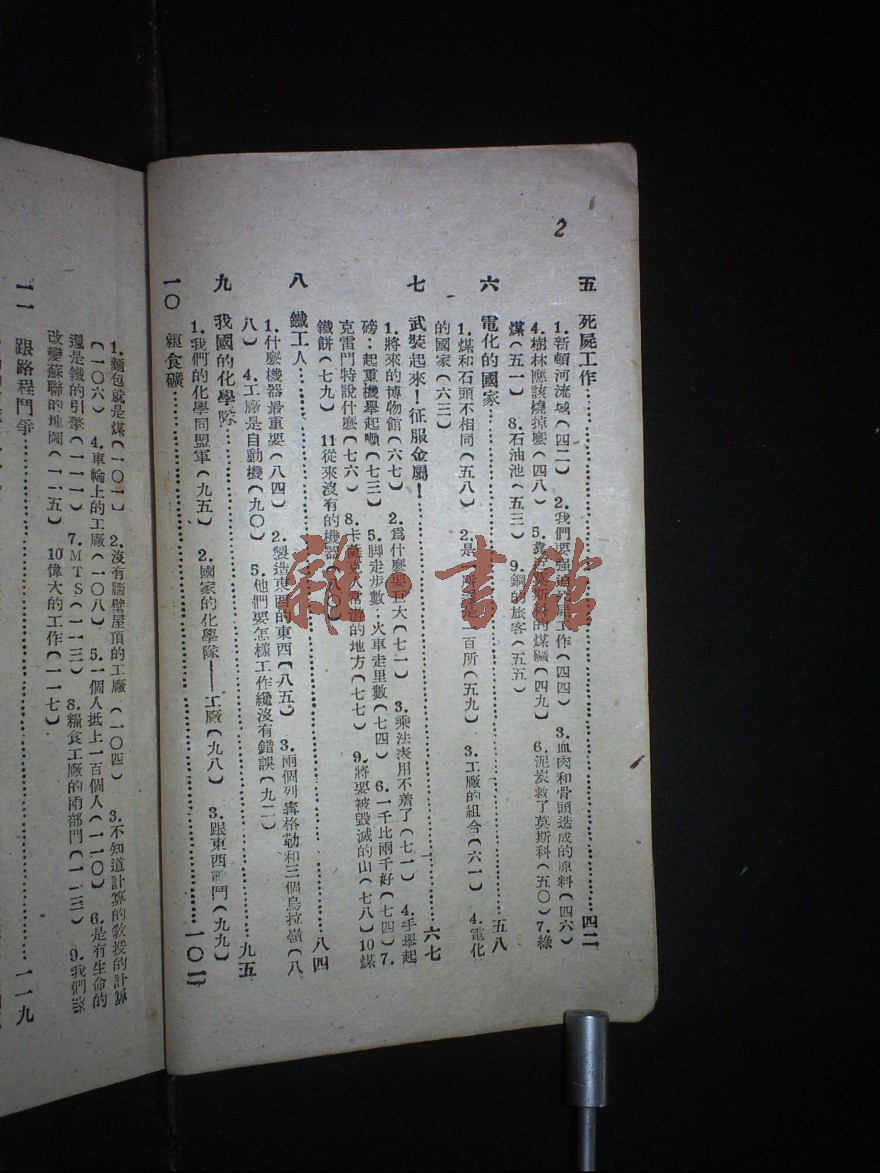 2
五 死屍工作……四二
1.新頓河流域(四二) 2.我們要强迫死屍工作(四四) 3.血肉和骨頭造成的原料(四六)
4.樹林應該燒掉麽(四八) 5.莫斯科的煤礦(四九) 6.泥炭救了莫斯科(五〇) 7.綠
煤(五一) 8.石油池(五三) 9.鋼的旅客(五五)
六 電化的國家……五八
1.煤和石頭不相同(五八) 2.是一所一百所(五九) 3.工廠的組合(六一) 4.電化
的國家(六三)
七 武裝起來!征服金屬!……六七
1.將來的博物館(六七) 2.爲什麽要巨大(七一) 3.乘法表用不着了(七一) 4.手舉起
磅:起重機舉起噸(七三) 5.脚走步數:火車走里數(七四) 6.一千比兩千好(七四) 7.
克雷門特說什麽(七六) 8.卡薩克人常游的地方(七七) 9.將要被毀滅的山(七八) 10煤
鐵餅(七九) 11從來沒有的機器(八〇)
八 鐵工人……八四
1.什麽機器最重要(八四) 2.製造東西的東西(八五) 3.兩個列寧格勒和三個烏拉嶺(八
八) 4.工廠是自動機(九〇) 5.他們要怎樣工作纔沒有錯誤(九二)
九 我國的化學隊……九五
1.我們的化學同盟軍(九五) 2.國家的化學隊——工廠(九八) 3.跟東西鬥(九九)
一〇 糧食礦……一〇一
1.麵包就是煤(一〇一) 2.沒有牆壁屋頂的工廠(一〇四) 3.不知道計算的教授的計算
(一〇六) 4.車輪上的工廠(一〇八) 5.一個人抵上一百個人(一一〇) 6.是有生命的
還是鐵的引擎(一一一) 7.MTS(一一三) 8.糧食工廠的兩部門(一一三) 9.我們
改變蘇聯的地圖(一一五) 10偉大的工作(一一七)
一一 跟路程鬥爭……一一九
雜·書館